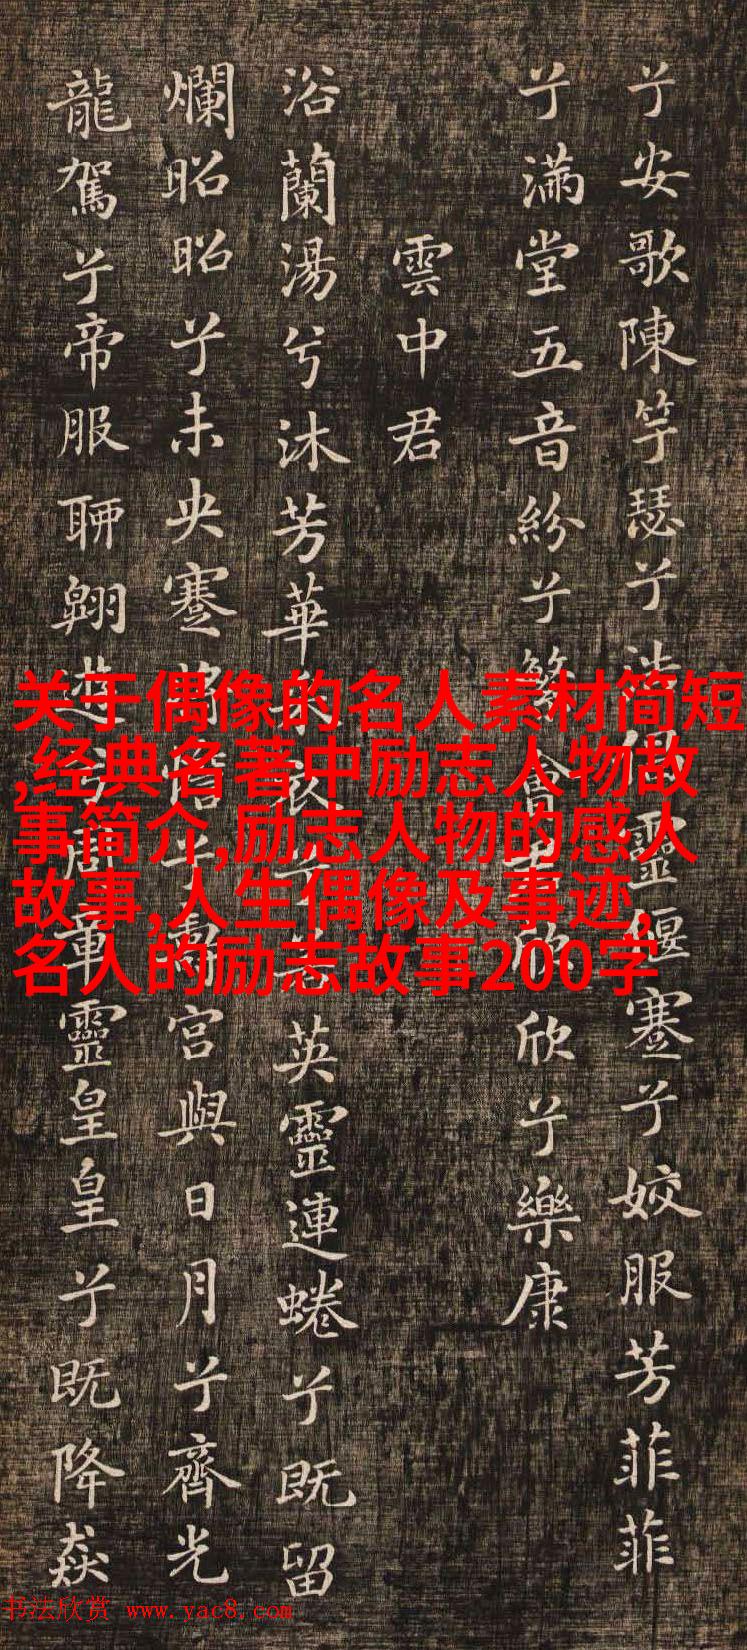 兮安歌陳竽瑟兮浩倡靈偃蹇兮姣服芳菲菲
兮滿堂五音紛兮繁會君欣欣兮樂康
雲中君
浴蘭湯兮沐芳華采衣兮若英靈連蜷兮既留
爛昭昭兮未央蹇將憺兮壽宮與日月兮齊光
龍駕兮帝服聊翱遊兮周章靈皇皇兮既降猋
关于偶像的名人素材简短
,经典名著中励志人物故
事简介,励志人物的感人
故事,人生偶像及事迹,
名人的励志故事200字
书法欣赏 www.yac8.com